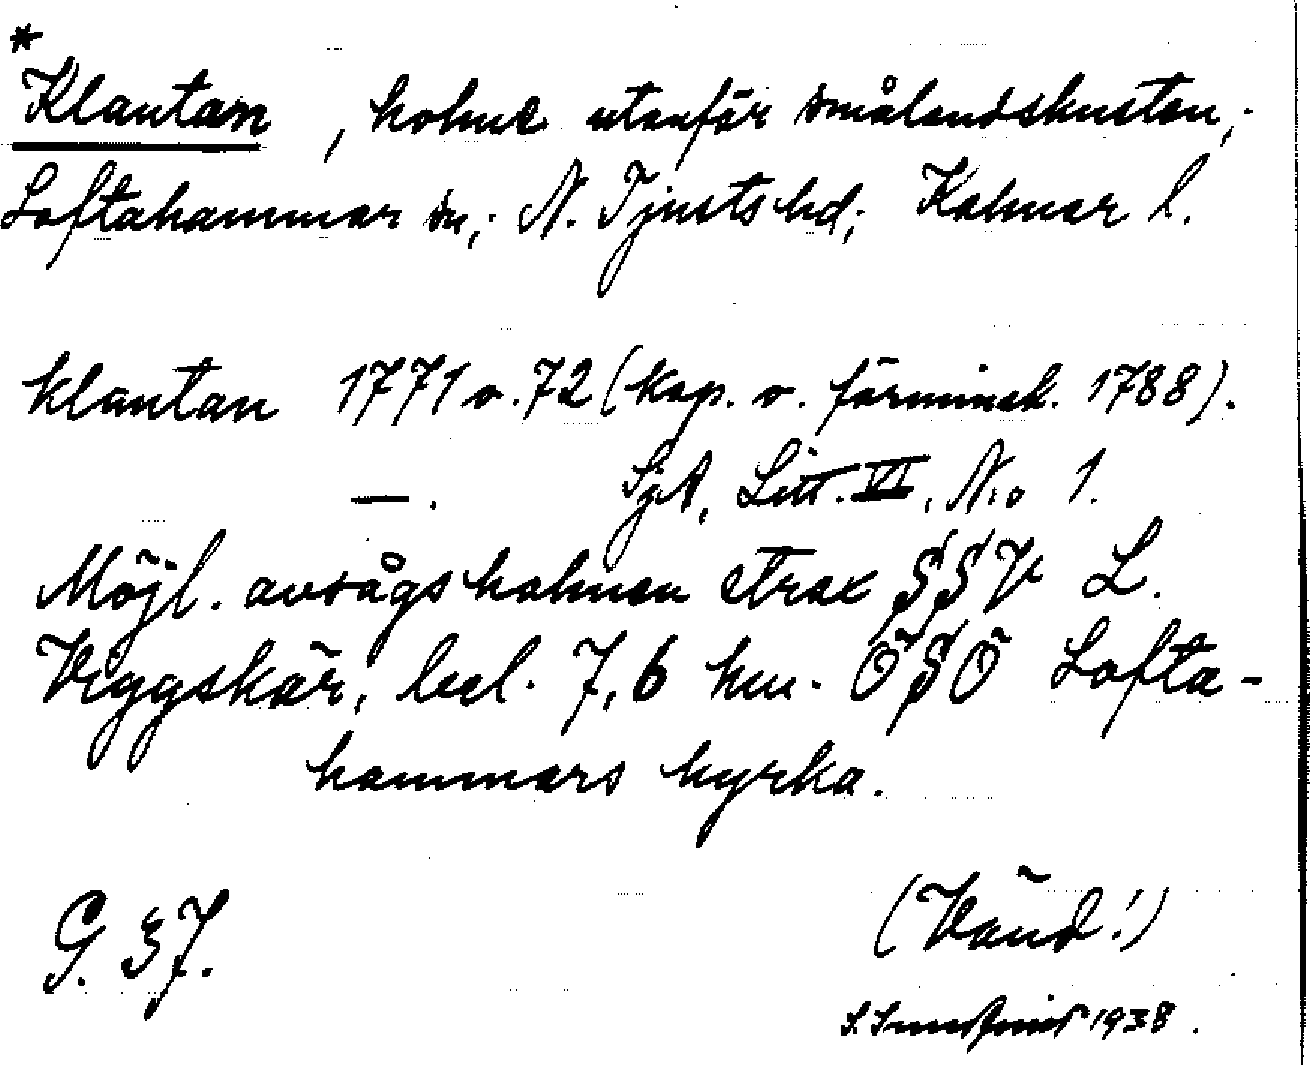 *
Klantan, holme utanför smålandskusten;
Loftahammar sn; N. Tjusts hd; Kalmar l.
Klantan 1771 o. 72 (kop. o. förminsk. 1788).
— . SjA, Litt. VI, No 1.
Möjl. avsågs holmen strax SSV L.
Viggskär, bel. 7,6 km. ÖSÖ Lofta-
hammars kyrka.
G. 37. (Vänd!)
1938.